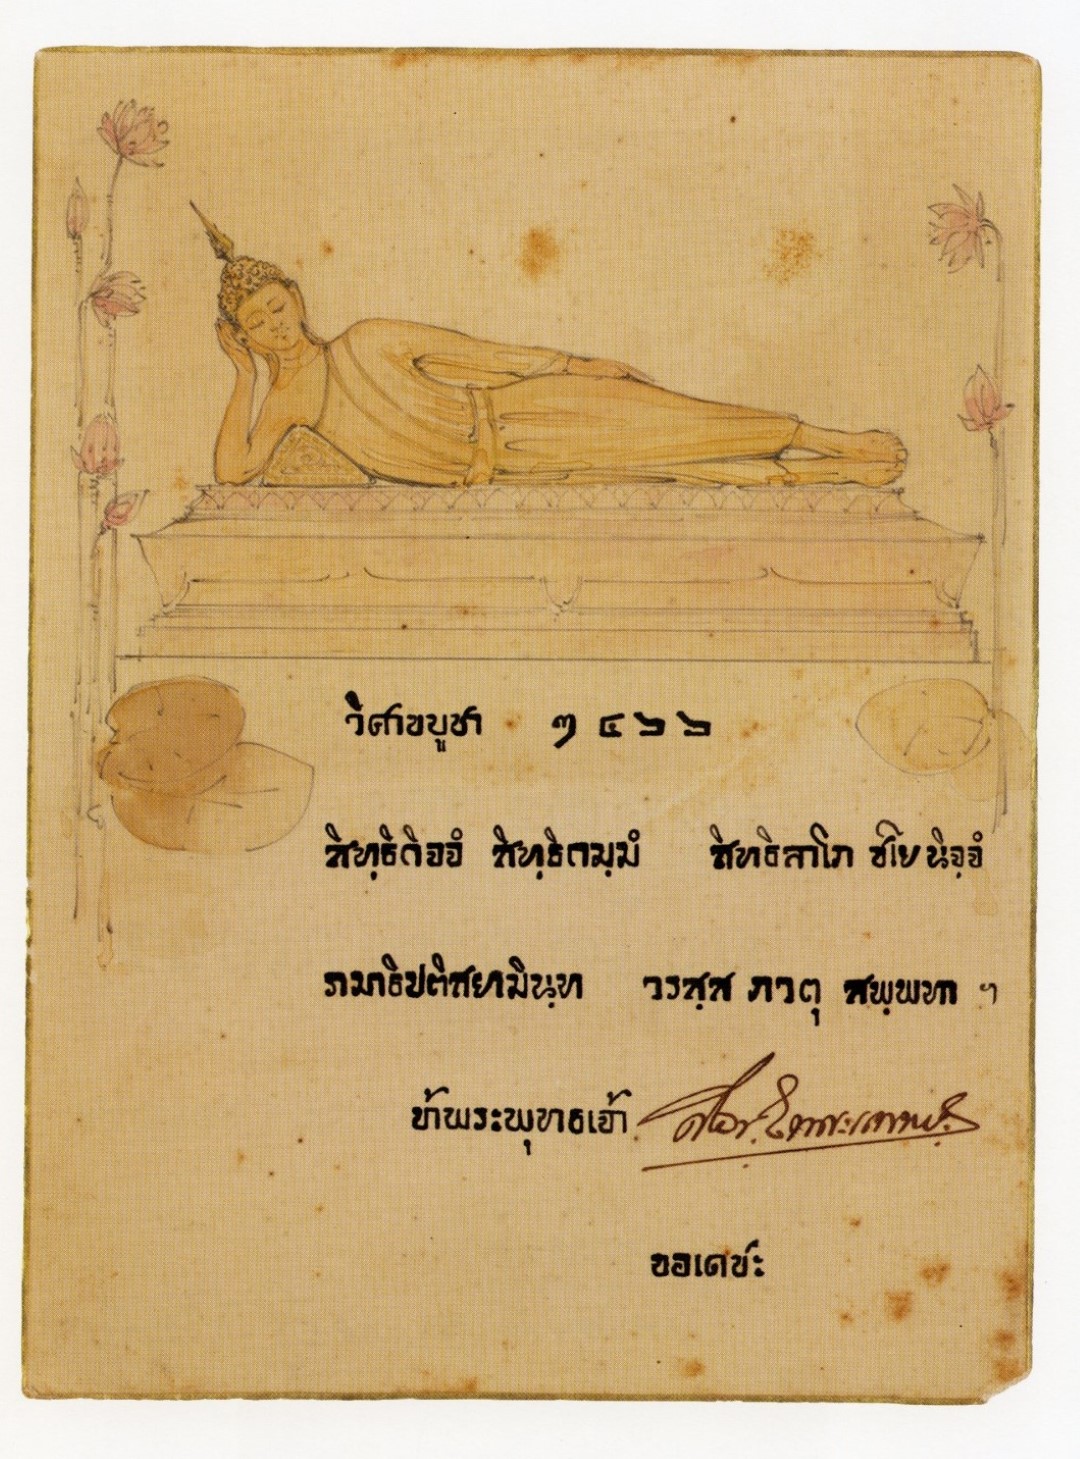 วิศาขบูชา ๒๔๖๖
สิทฺธิกิจฺจํ สิทฺธิกมฺมํ สิทธิลาโภ ชโย นิจฺจํ
ภูมาธิปติสยามินฺท วรสฺส ภวตุ สพฺพทา ฯ
ข้าพระพุทธเจ้า
ขอเดชะ